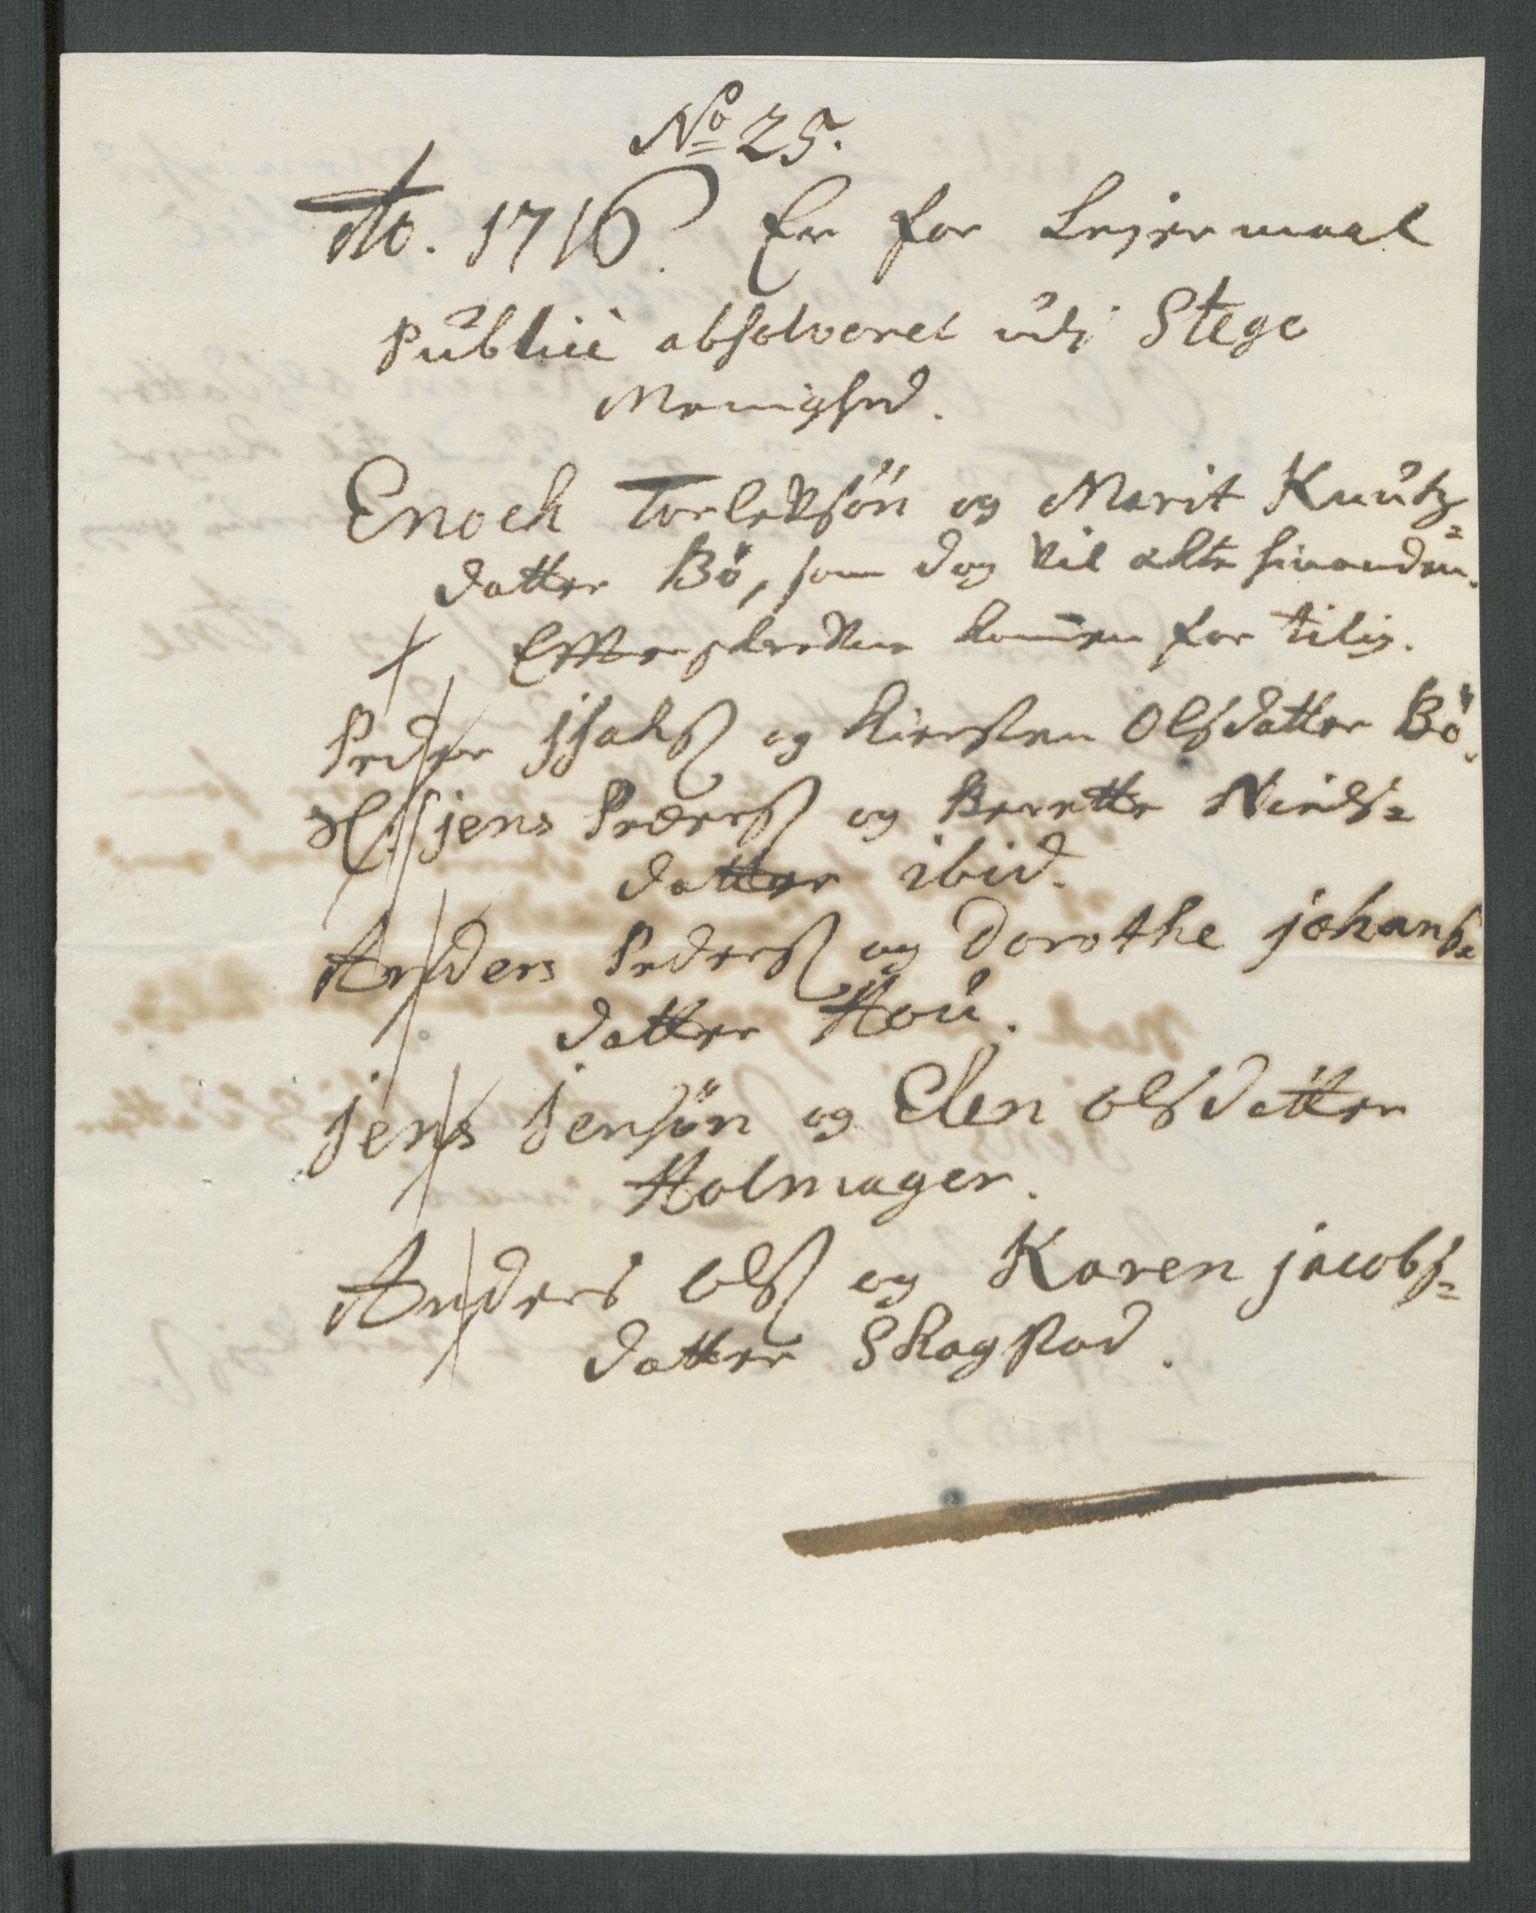 No 25.
Ao. 1716. Er for Lejermaal
publicè absolveret udj Stege
Menighed.
Enoch Torleksön og Marit Knutz=
datter Bö, som dog vil ækte hinanden.
+ Efterskrevne komen for tilig.
Peder Isaks og Kiersten Olsdatter Bö.
jens Peders og Berette Niels=
datter ibid.
Anders Peders og Dorothe johans=
datter Hou.
jens jensön og Elen Olsdatter
Holmager.
Anders Ols og Karen jacobs=
datter Skogstad.